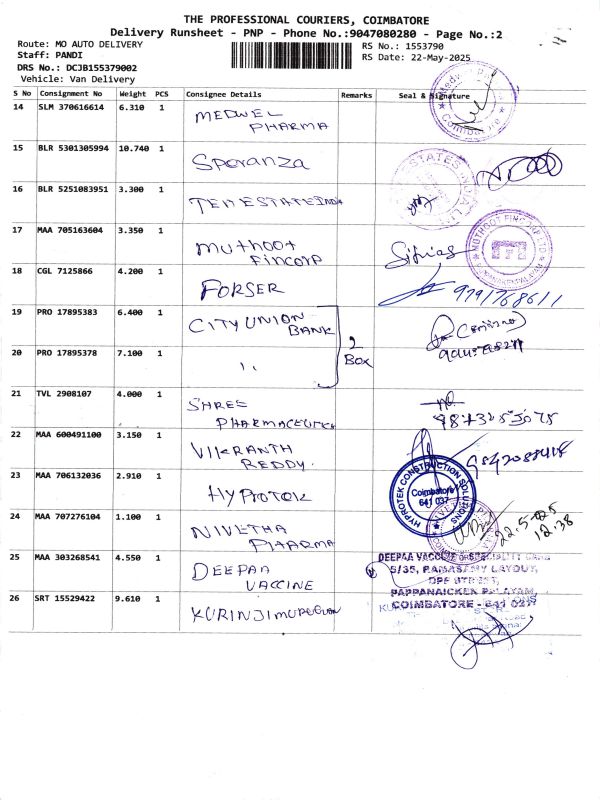 THE PROFESSIONAL COURIERS, COIMBATORE
Delivery Runsheet - PNP - Phone No.:9047080280 - Page No.:2
Route: MO AUTO DELIVERY
RS No.: 1553790
Staff: PANDI
RS Date: 22-May-2025
DRS No.: DCJB155379002
Vehicle: Van Delivery
S No Consignment No Weight PCS Consignee Details Remarks Seal & Signature
14 SLM 370616614 6.310 1 MEDWEL PHARMA
Coimbatore
15 BLR 5301305994 10.740 1 Speranza
16 BLR 5251083951 3.300 1 TENESTATEINDIA
17 MAA 705163604 3.350 1 Muthoot Fincorp
MUTHOOT FINCORP LTD
18 CGL 7125866 4.200 1 FORSER 9791768611
19 PRO 17895383 6.400 1 CITY UNION BANK
2 Box
20 PRO 17895378 7.100 1 ,,
21 TVL 2908107 4.000 1 SHREE PHARMACEUTICA
22 MAA 600491100 3.150 1 VIKRANTH REDDY.
23 MAA 706132036 2.910 1 HYPROTEK
HYPROTEK CONSTRUCTION SOLUTIONS
Coimbatore
641 037
24 MAA 707276104 1.100 1 NIVETHA PHARMA
12.38
25 MAA 303268541 4.550 1 DEEPAA VACCINE
DEEPAA VACCINE
5/35, RAMASAMY LAYOUT,
DPF STREET,
PAPPANAICKEN PALAYAM,
COIMBATORE - 641 037
26 SRT 15529422 9.610 1 KURINJIMURUGAN